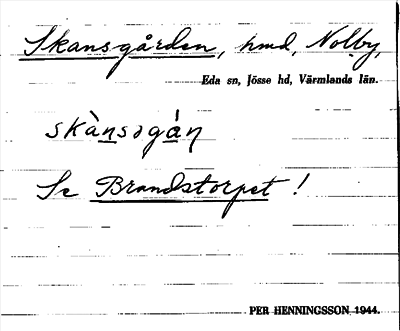 Skansgården, hmd, Nolby,
Eda sn, Jösse hd, Värmlands län.
skàn̲sɔgá̲ŋ
Se Brandstorpet!
PER HENNINGSSON 1944.